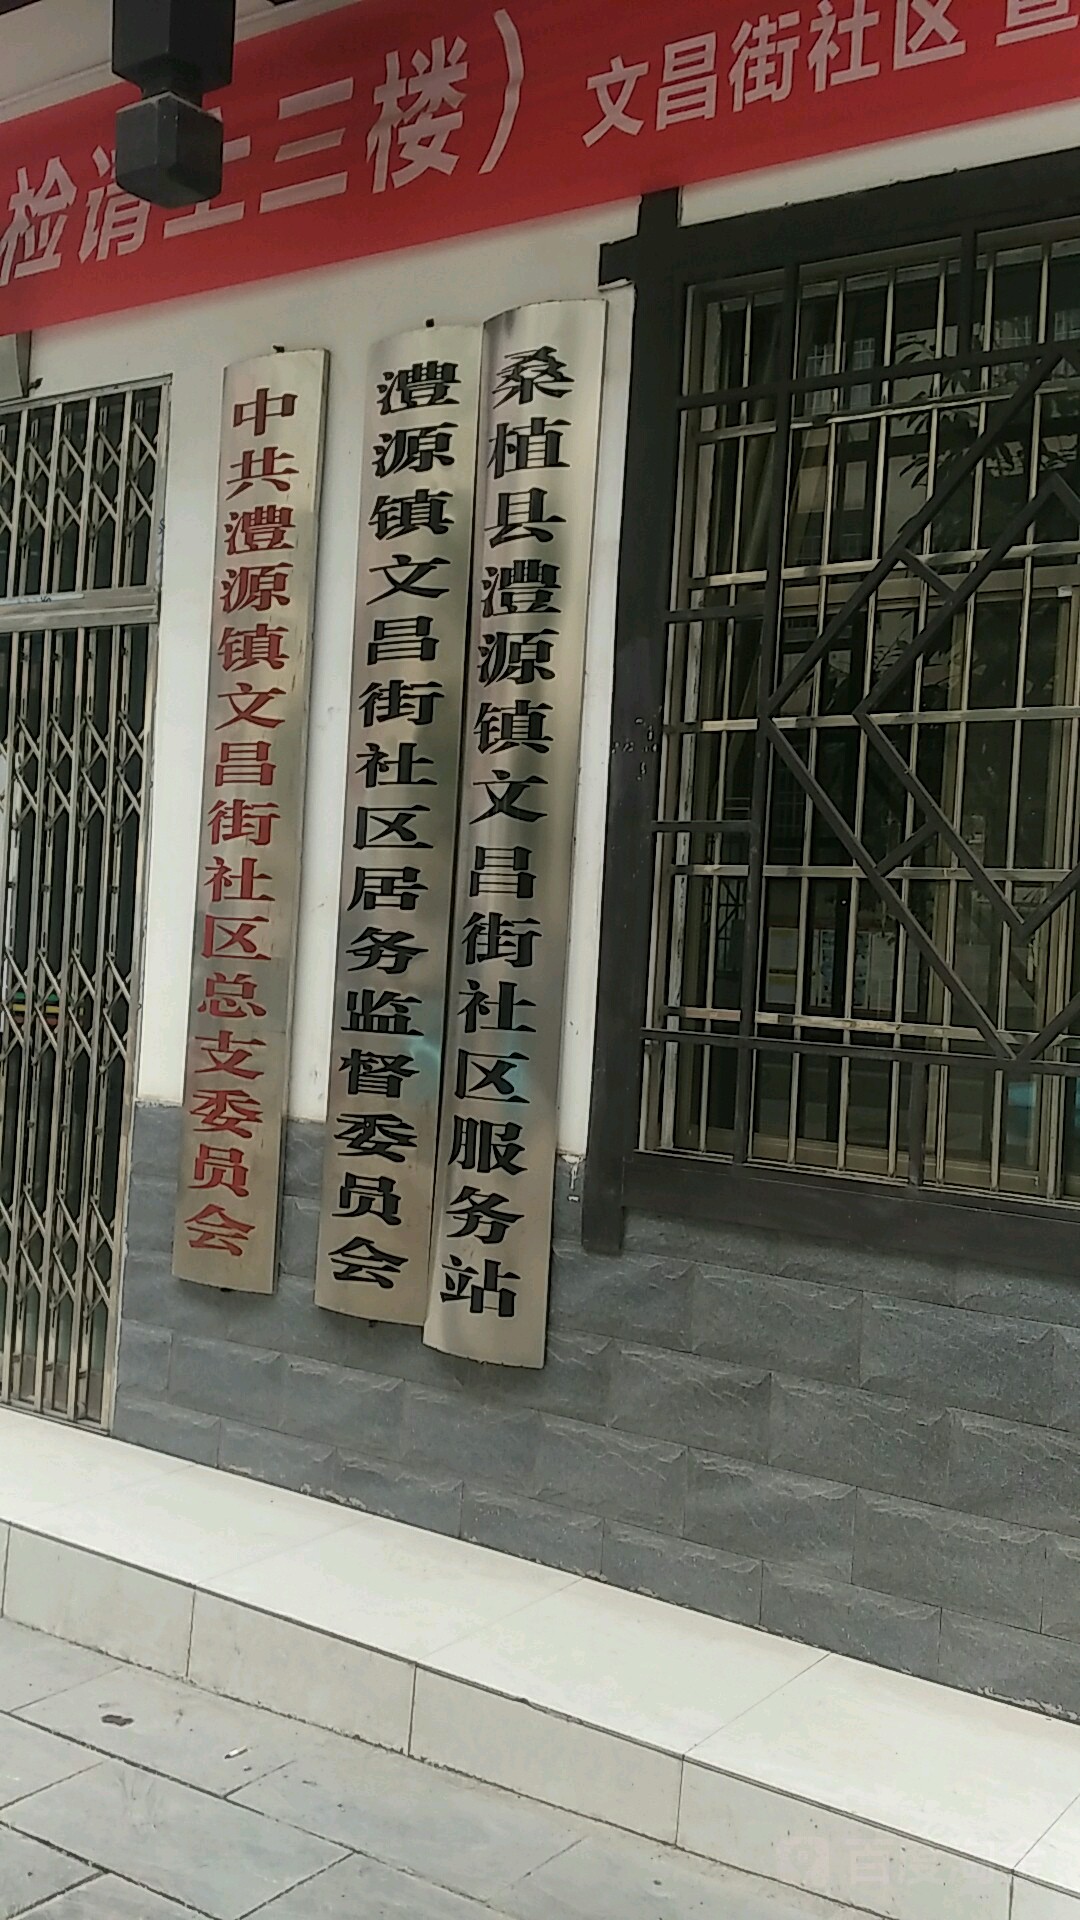 检请上三楼）文昌街社区
中共澧源镇文昌街社区总支委员会
澧源镇文昌街社区居务监督委员会
桑植县澧源镇文昌街社区服务站